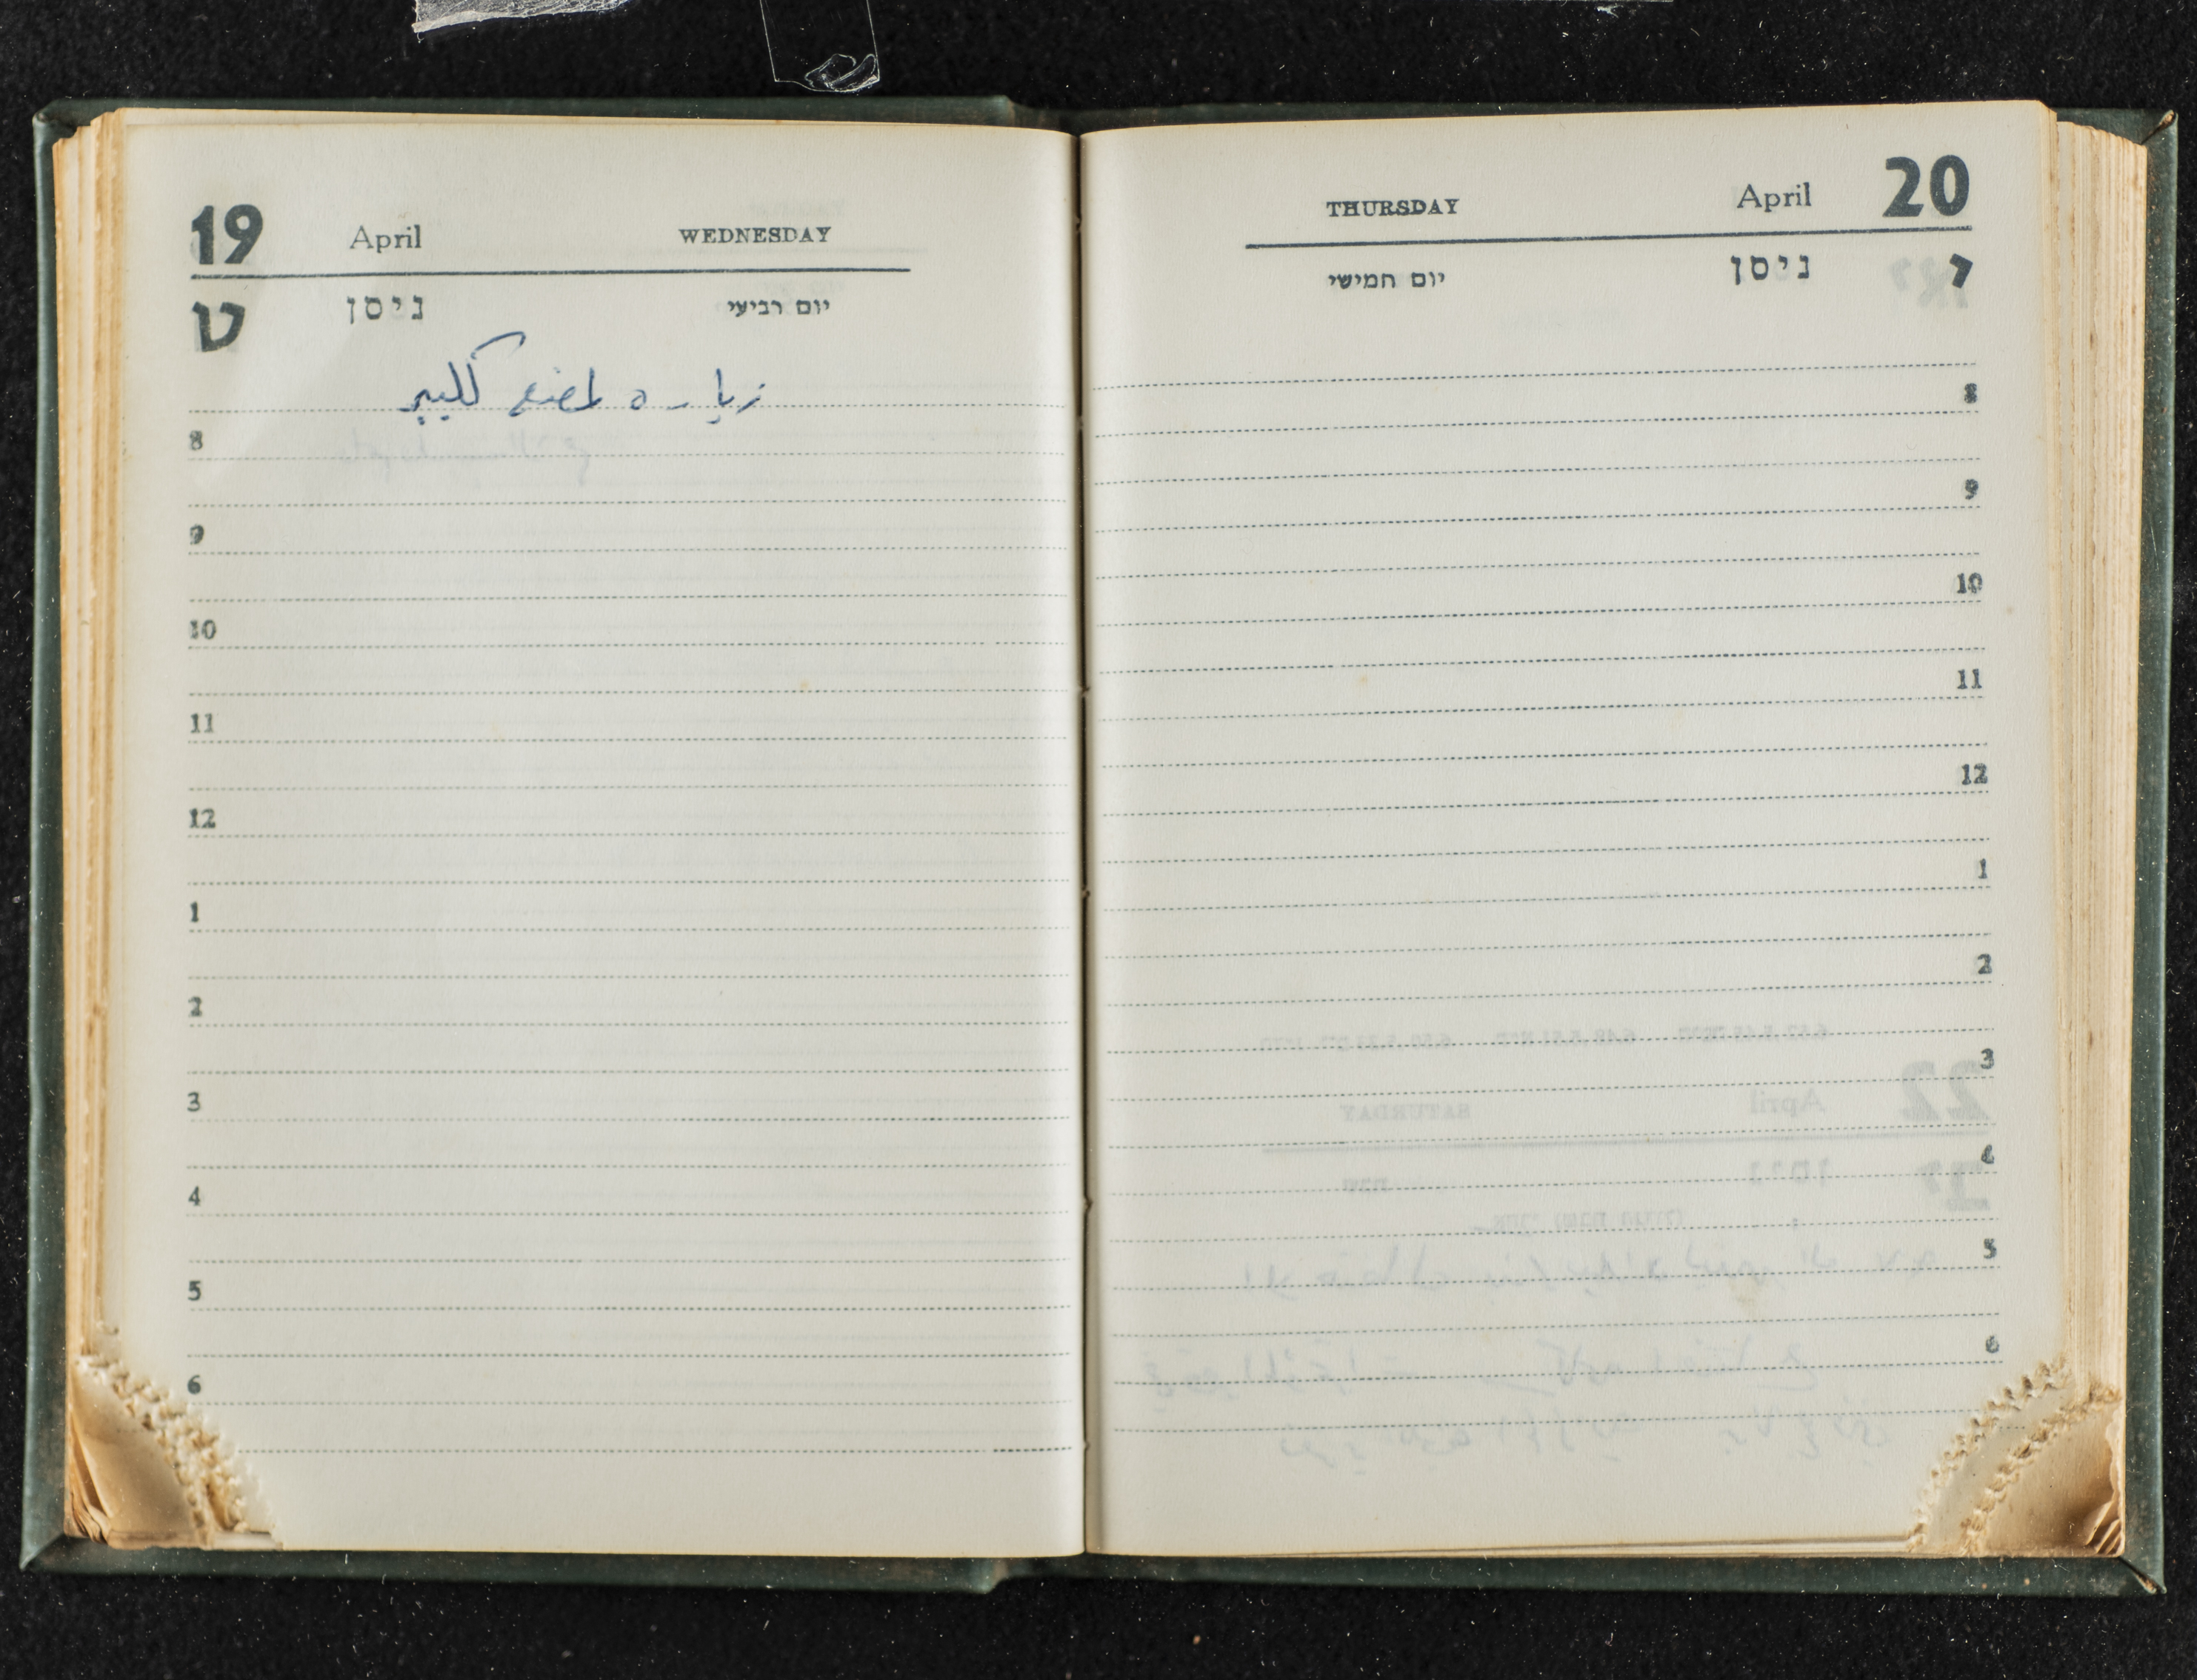 19 April WEDNESDAY
ט ניסן יום רביעי
زيارة لمصنع كلير
8
9
10
11
12
1
2
3
4
5
6
THURSDAY April 20
יום חמישי ניסן י
8
9
10
11
12
1
2
3
4
5
6